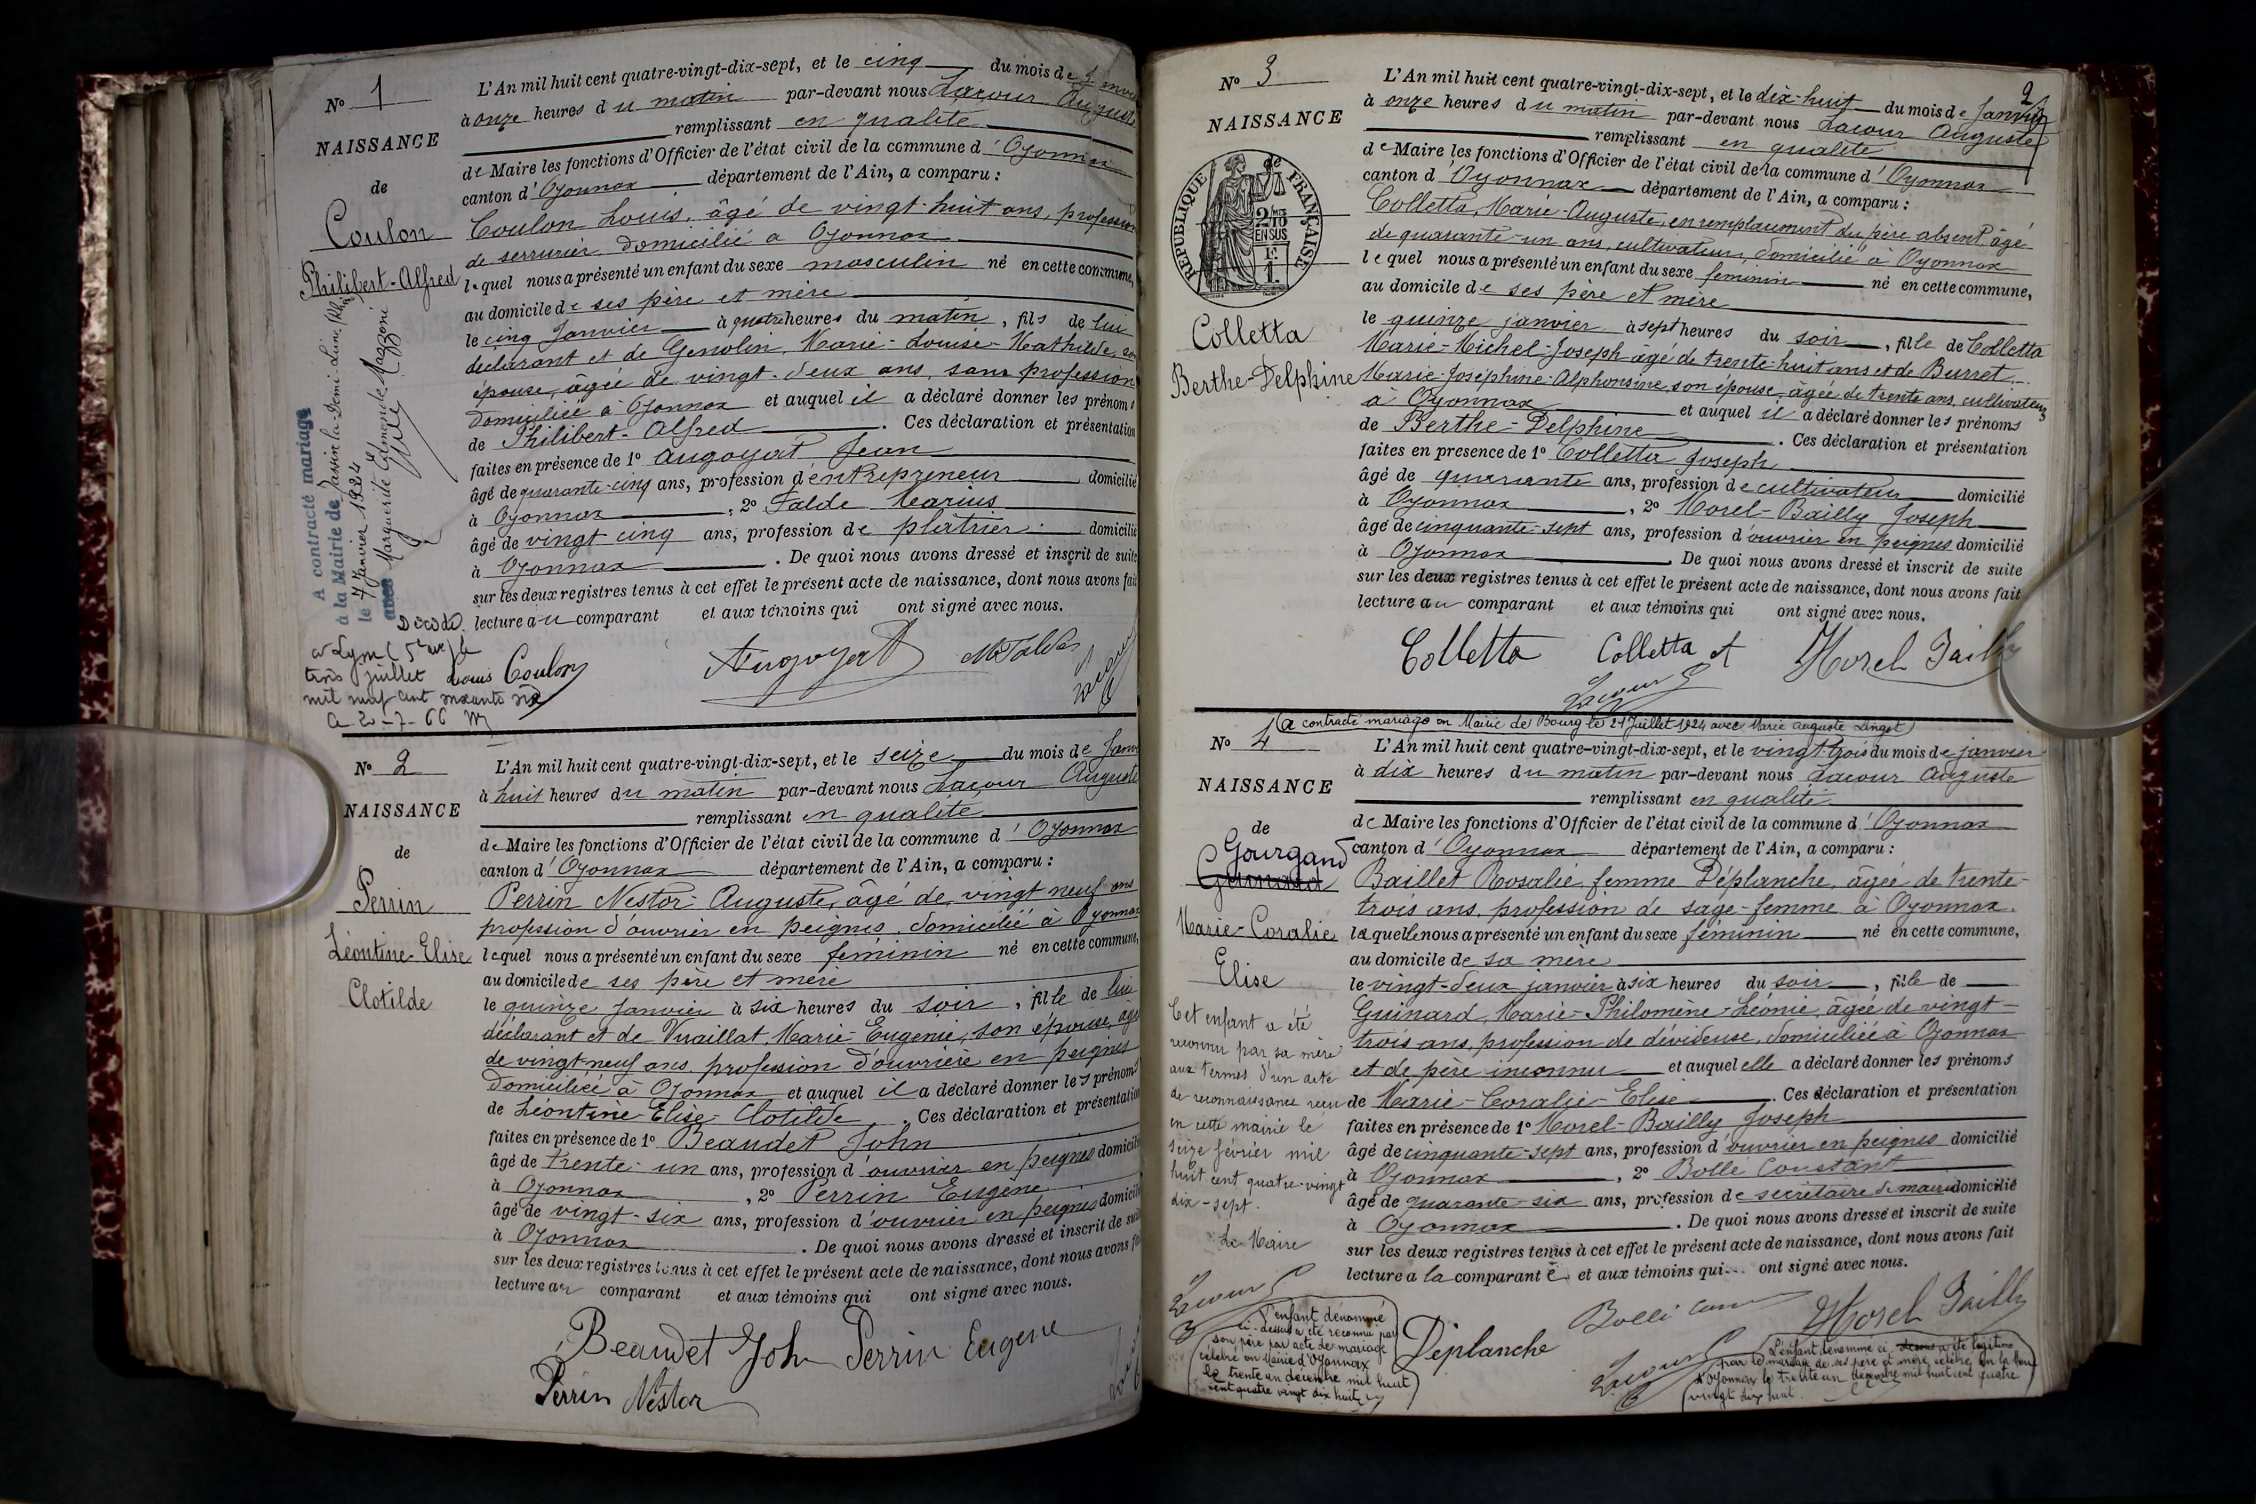 No 1
NAISSANCE
de
Coulon
Philibert-Alfred
A contracté mariage
à la Mairie de Tassin-la-Demi-Lune (Rhône)
le 7 Janvier 1924
avec Marguerite Esmeralda Mazzoni
Décédé
à Lyon (5e arr) le
trois juillet
mil neuf cent soixante six
L'An mil huit cent quatre-vingt-dix-sept, et le cinq du mois de Janvier
à onze heures du matin par-devant nous Lacour Auguste
remplissant en qualité
de Maire les fonctions d'Officier de l'état civil de la commune d'Oyonnax
canton d'Oyonnax département de l'Ain, a comparu :
Coulon Louis, âgé de vingt-huit ans, profession
de serrurier, domicilié à Oyonnax
lequel nous a présenté un enfant du sexe masculin né en cette commune,
au domicile de ses père et mère
le cinq Janvier à quatre heures du matin, fils de lui
déclarant et de Genolin, Marie-Louise-Mathilde, son
épouse, âgée de vingt-deux ans, sans profession
domiciliée à Oyonnax et auquel il a déclaré donner les prénoms
de Philibert-Alfred. Ces déclaration et présentation
faites en présence de 1o Augoyat Jean
âgé de quarante-cinq ans, profession d'entrepreneur domicilié
à Oyonnax, 2o Falde Marius
âgé de vingt cinq ans, profession de plâtrier domicilié
à Oyonnax. De quoi nous avons dressé et inscrit de suite
sur les deux registres tenus à cet effet le présent acte de naissance, dont nous avons fait
lecture au comparant et aux témoins qui ont signé avec nous.
Louis Coulon Augoyat M Falde
No 2
NAISSANCE
de
Perrin
Léontine-Elise
Clotilde
L'An mil huit cent quatre-vingt-dix-sept, et le seize du mois de Janvier
à huit heures du matin par-devant nous Lacour Auguste
remplissant en qualité
de Maire les fonctions d'Officier de l'état civil de la commune d'Oyonnax
canton d'Oyonnax département de l'Ain, a comparu :
Perrin Nestor-Auguste, âgé de vingt neuf ans
profession d'ouvrier en peignes, domicilié à Oyonnax
lequel nous a présenté un enfant du sexe féminin né en cette commune,
au domicile de ses père et mère
le quinze Janvier à six heures du soir, fille de lui
déclarant et de Vuaillat, Marie Eugénie, son épouse, âgée
de vingt neuf ans, profession d'ouvrière en peignes
domiciliée à Oyonnax et auquel il a déclaré donner les prénoms
de Léontine-Elise-Clotilde. Ces déclaration et présentation
faites en présence de 1o Beaudet John
âgé de trente-un ans, profession d'ouvrier en peignes domicilié
à Oyonnax, 2o Perrin Eugène
âgé de vingt-six ans, profession d'ouvrier en peignes domicilié
à Oyonnax. De quoi nous avons dressé et inscrit de suite
sur les deux registres tenus à cet effet le présent acte de naissance, dont nous avons fait
lecture au comparant et aux témoins qui ont signé avec nous.
Beaudet John Perrin Eugene
Perrin Nestor
2
No 3
NAISSANCE
de
RÉPUBLIQUE FRANÇAISE
2/10 EN SUS
1 F.
Colletta
Berthe-Delphine
L'An mil huit cent quatre-vingt-dix-sept, et le dix-huit du mois de Janvier
à onze heures du matin par-devant nous Lacour Auguste
remplissant en qualité
de Maire les fonctions d'Officier de l'état civil de la commune d'Oyonnax
canton d'Oyonnax département de l'Ain, a comparu :
Colletta, Marie-Auguste, en remplacement du père absent, âgé
de quarante-un ans, cultivateur, domicilié à Oyonnax
lequel nous a présenté un enfant du sexe féminin né en cette commune,
au domicile de ses père et mère
le quinze janvier à sept heures du soir, fille de Colletta
Marie-Michel-Joseph âgé de trente-huit ans et de Burret
Marie-Joséphine-Alphonsine, son épouse, âgée de trente ans, cultivateurs
à Oyonnax et auquel il a déclaré donner les prénoms
de Berthe-Delphine. Ces déclaration et présentation
faites en présence de 1o Colletta Joseph
âgé de quarante ans, profession de cultivateur domicilié
à Oyonnax, 2o Morel-Bailly Joseph
âgé de cinquante-sept ans, profession d'ouvrier en peignes domicilié
à Oyonnax De quoi nous avons dressé et inscrit de suite
sur les deux registres tenus à cet effet le présent acte de naissance, dont nous avons fait
lecture au comparant et aux témoins qui ont signé avec nous.
Colletta Colletta Morel Bailly
Lacour
(a contracté mariage en Mairie de Bourg le 21 Juillet 1924 avec Marie Auguste Linget)
No 4
NAISSANCE
de
Gourgand
Guinard
Marie-Coralie
Elise
Cet enfant a été
reconnu par sa mère
aux termes d'un acte
de reconnaissance reçu
en cette mairie le
seize février mil
huit cent quatre-vingt
dix-sept.
Le Maire
Lacour
L'An mil huit cent quatre-vingt-dix-sept, et le vingt-trois du mois de janvier
à dix heures du matin par-devant nous Lacour Auguste
remplissant en qualité
de Maire les fonctions d'Officier de l'état civil de la commune d'Oyonnax
canton d'Oyonnax département de l'Ain, a comparu :
Baillet Rosalie, femme Déplanche, âgée de trente-
trois ans, profession de sage-femme à Oyonnax.
laquelle nous a présenté un enfant du sexe féminin né en cette commune,
au domicile de sa mère
le vingt-deux janvier à six heures du soir, fille de
Guinard, Marie-Philomène-Léonie, âgée de vingt-
trois ans, profession de dévideuse, domiciliée à Oyonnax
et de père inconnu et auquel elle a déclaré donner les prénoms
de Marie-Coralie-Elise. Ces déclaration et présentation
faites en présence de 1o Morel-Bailly Joseph
âgé de cinquante-sept ans, profession d'ouvrier en peignes domicilié
à Oyonnax, 2o Bolle Constant
âgé de quarante-six ans, profession de secrétaire de mairie domicilié
à Oyonnax. De quoi nous avons dressé et inscrit de suite
sur les deux registres tenus à cet effet le présent acte de naissance, dont nous avons fait
lecture a la comparante et aux témoins qui ont signé avec nous.
Déplanche Bolle Morel Bailly
Lacour
L'enfant dénommé
ci-dessus a été reconnu par
son père par acte de mariage
célébré en Mairie d'Oyonnax
le trente un décembre mil huit
cent quatre vingt dix huit
L'enfant dénommé ci-dessus a été légitimé
par le mariage de ses père et mère, célébré en la Mairie
d'Oyonnax le trente un décembre mil huit cent quatre
vingt dix huit